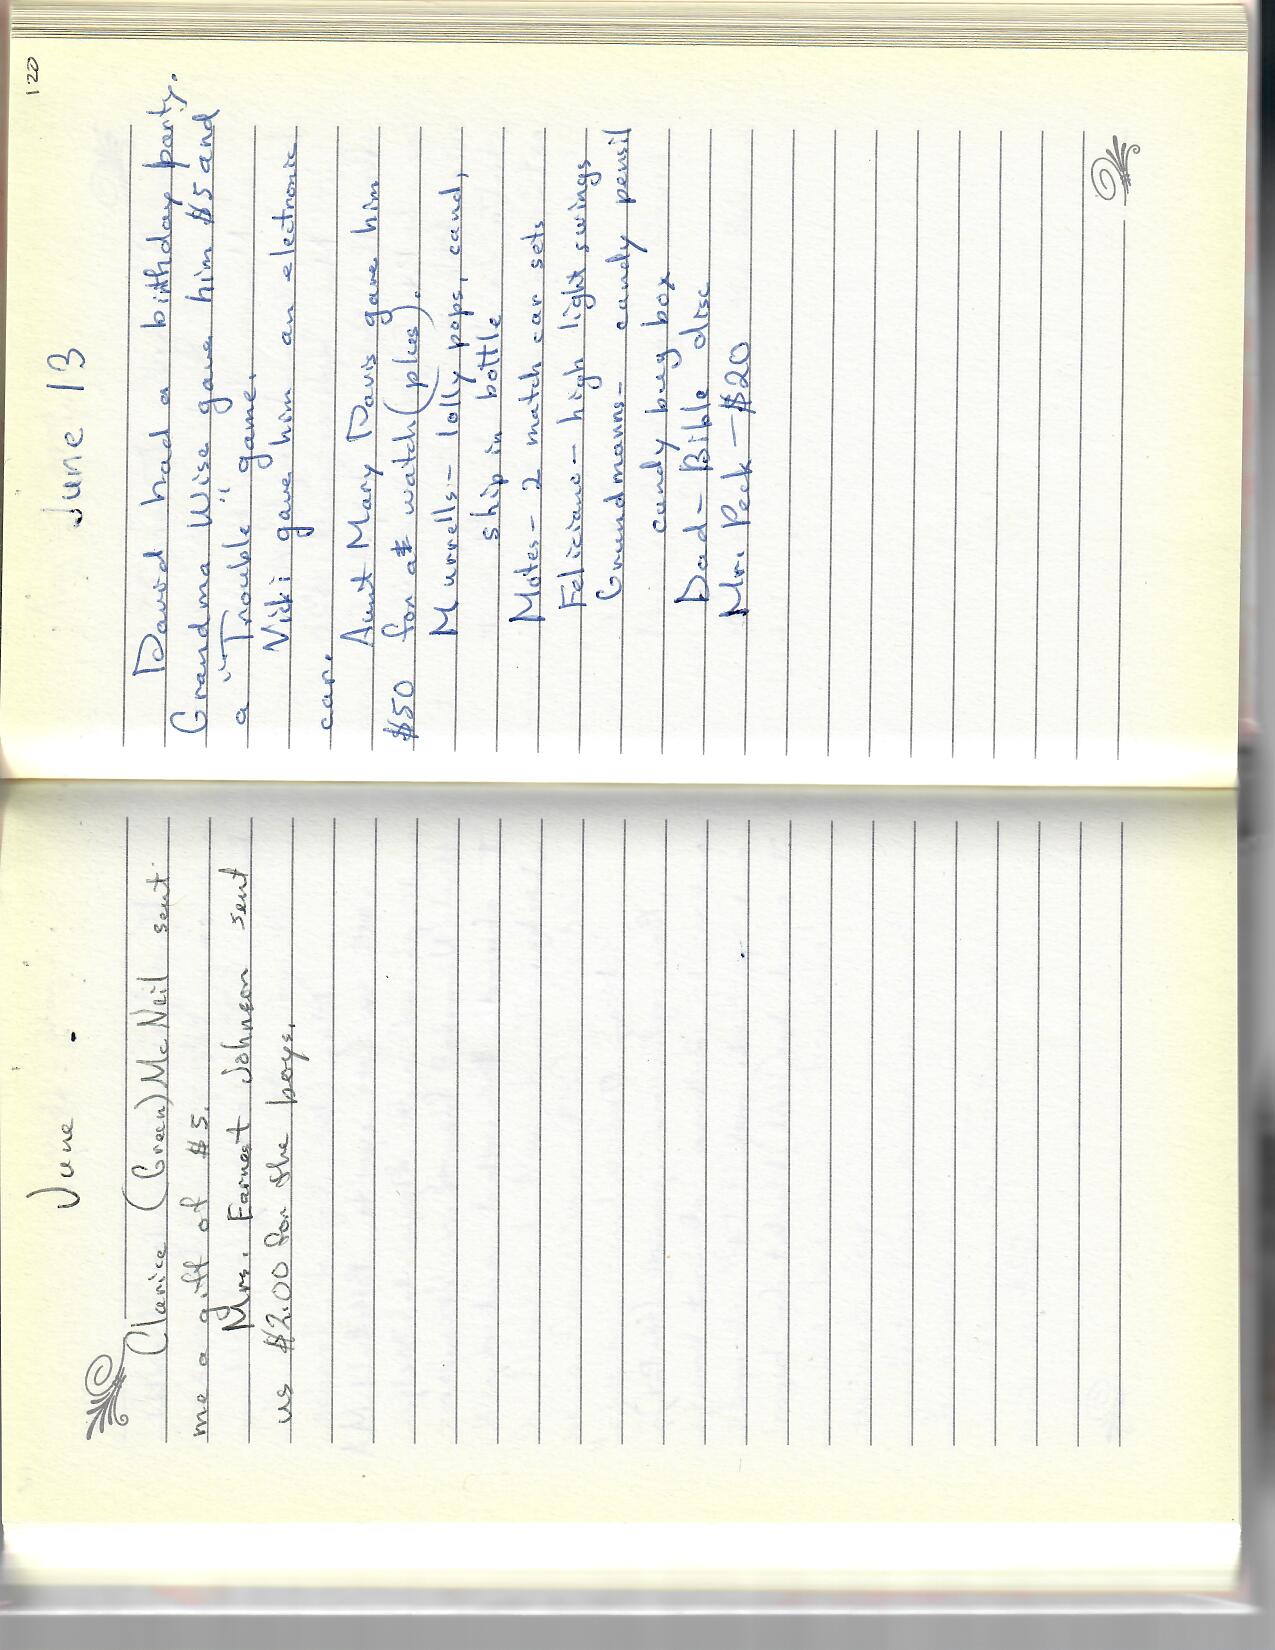 June
Clarice (Green) McNeil sent
me a gift of $5.
Mrs. Earnest Johnson sent
us $2.00 for the boys.
120
June 13
David had a birthday party.
Grandma Wise gave him $5 and
a "Trouble" game.
Vicki gave him an electronic
car.
Aunt Mary Davis gave him
$50 for a watch (plus).
Murrells - lolly pops, cand,
ship in bottle
Motes - 2 match car sets
Feliciano - high light swings
Grundmanns - candy pensil
candy bug box
Dad - Bible disc
Mr. Peck - $20